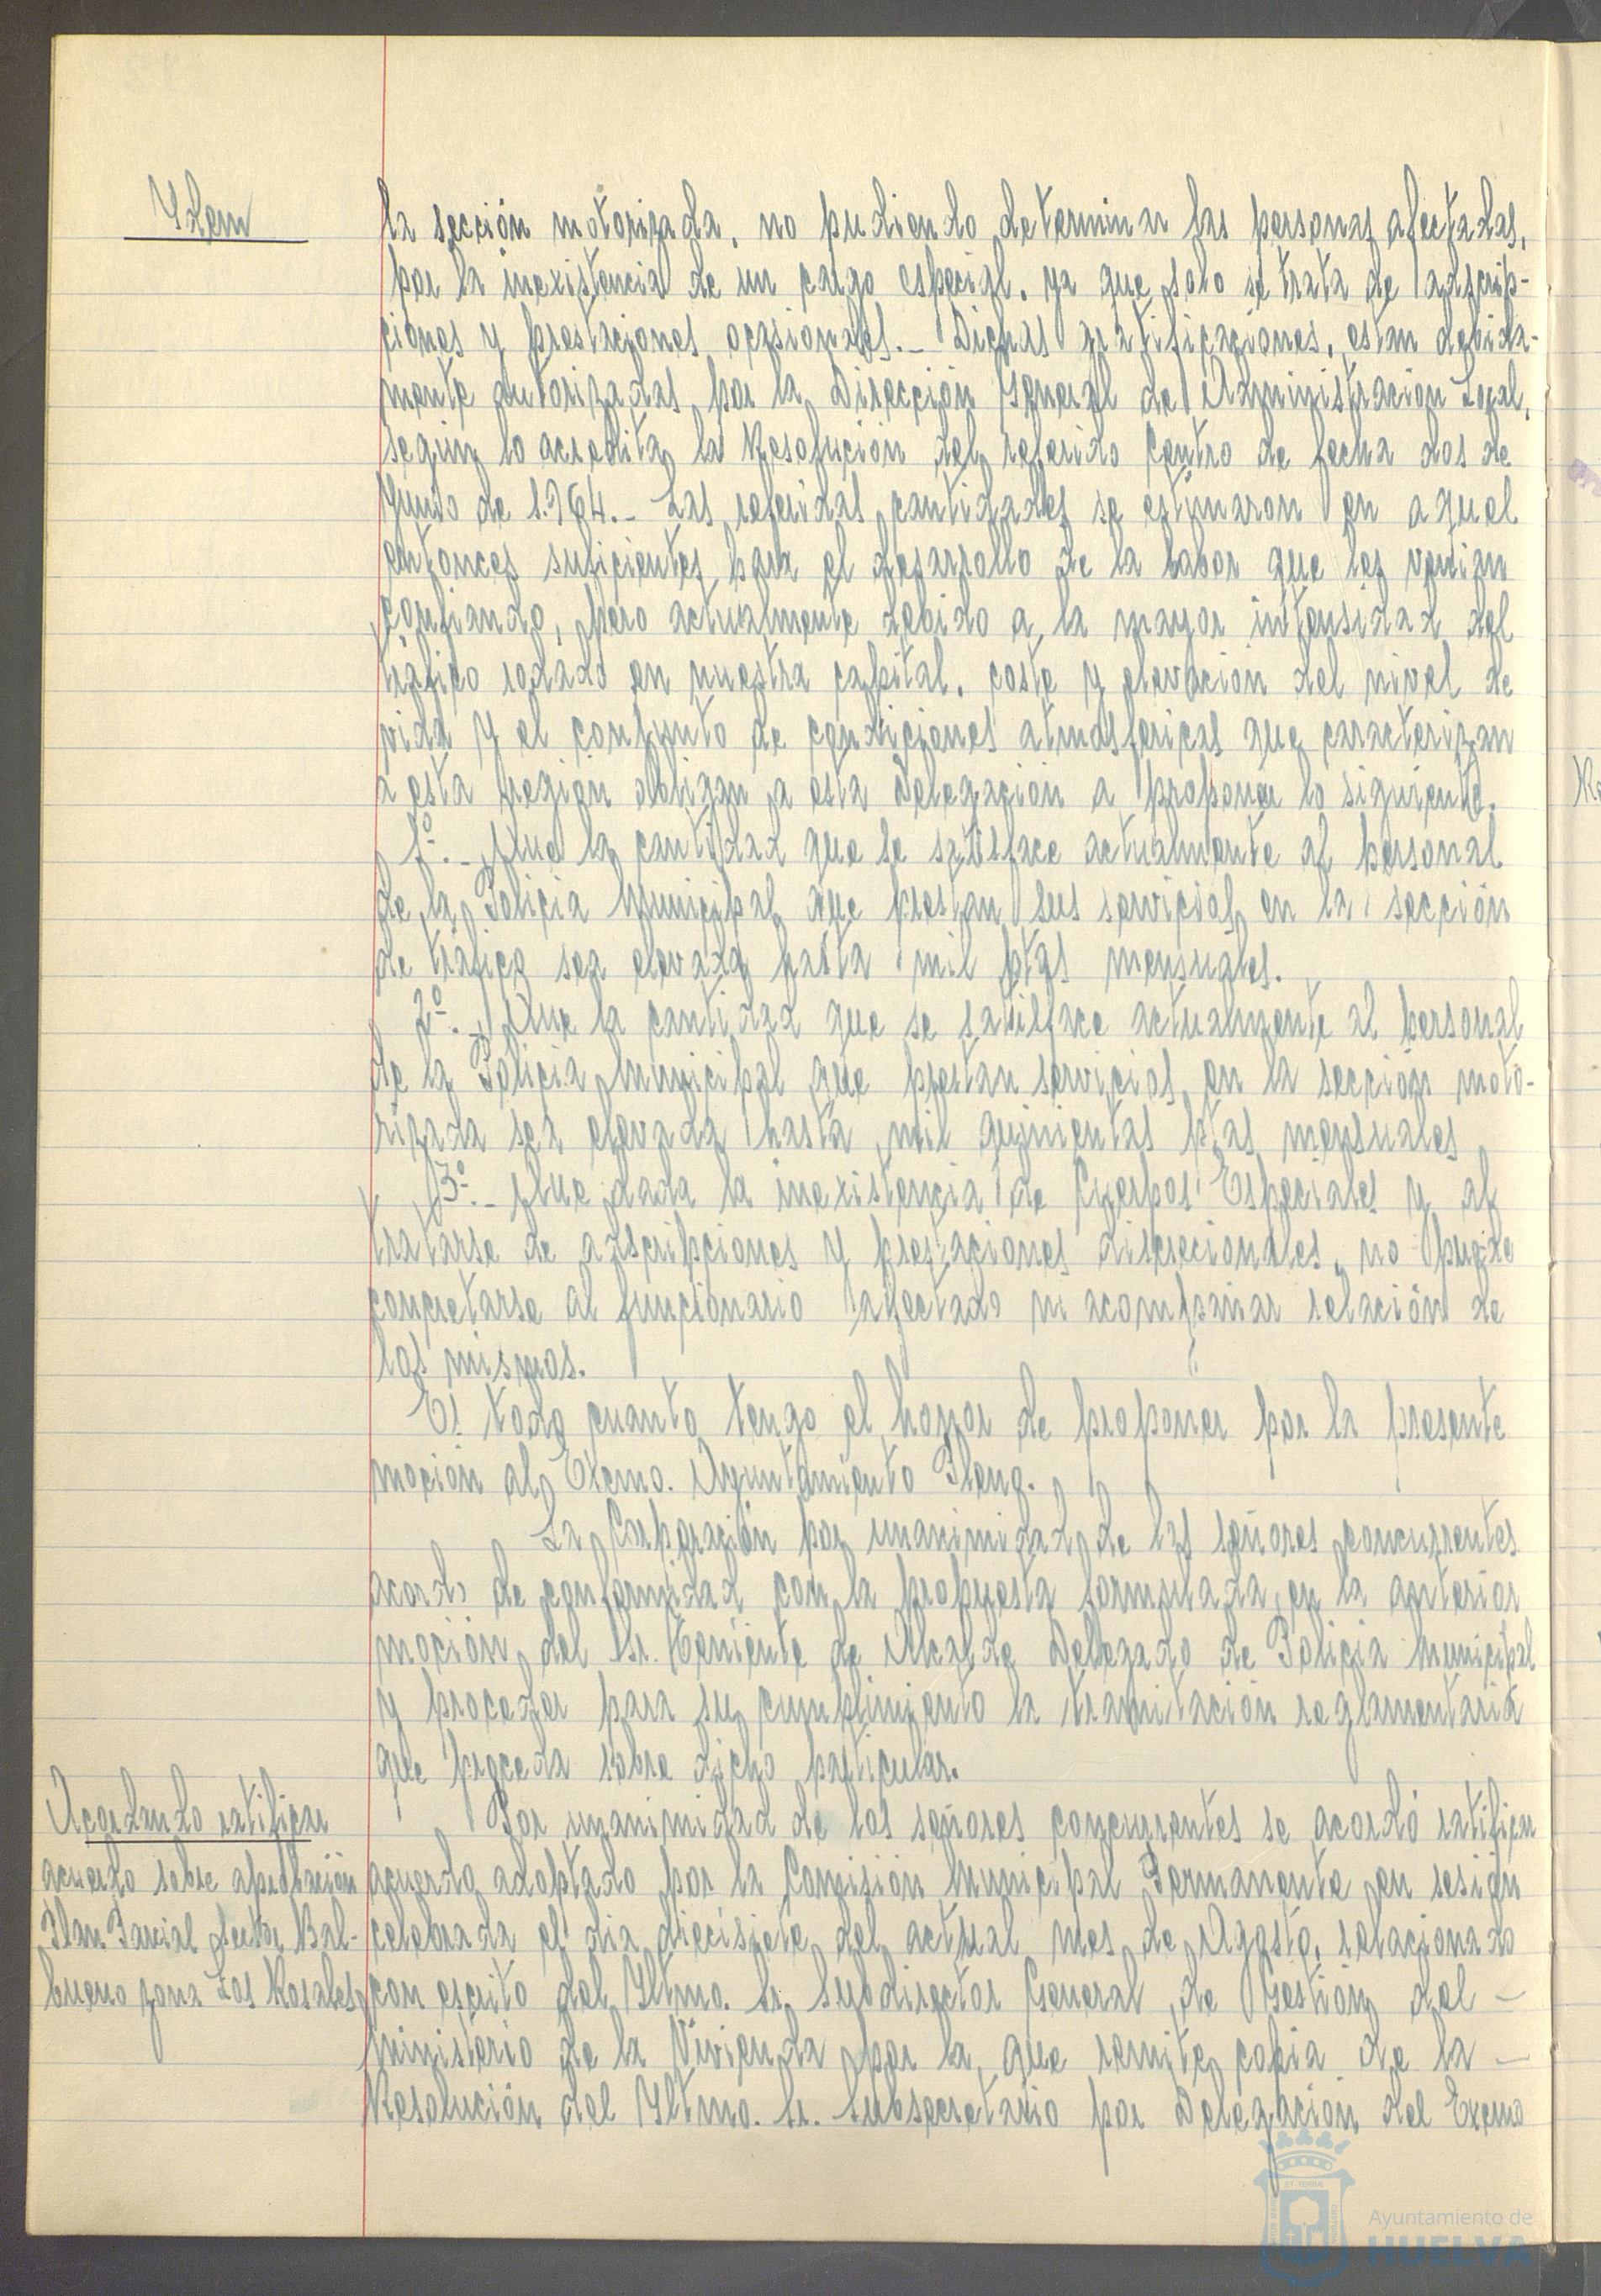 Ydem
la sección motorizada, no pudiendo determinar las personas afectadas,
por la inexistencia de un cargo especial, ya que solo se trata de adscrip-
ciones y prestaciones ocasionales.- Dichas gratificaciones, estan debida-
mente autorizadas por la Dirección General de Administración Local,
según lo acredita la Resolución del referido Centro de fecha dos de
Junio de 1.964.- Las referidas cantidades se estimaron en aquel
entonces suficientes para el desarrollo de la labor que les venian
confiando, pero actualmente debido a la mayor intensidad del
tráfico rodado en nuestra capital, coste y elevación del nivel de
vida y el conjunto de condiciones atmosfericas que caracterizan
a esta región obligan a esta Delegación a proponer lo siguiente.
1º.- Que la cantidad que se satisface actualmente al personal
de la Policia Municipal que prestan sus servicios en la sección
de tráfico sea elevada hasta mil ptas mensuales.
2º.- Que la cantidad que se satisface actualmente al personal
de la Policia Municipal que prestan servicios en la sección moto-
rizada sea elevada hasta mil quinientas ptas mensuales
3º.- Que dada la inexistencia de Cuerpos Especiales y al
tratarse de adscripciones y prestaciones discrecionales, no puede
concretarse al funcionario afectado ni acompañar relación de
los mismos.
Es todo cuanto tengo el honor de proponer por la presente
moción al Excmo. Ayuntamiento Pleno.
La Corporación por unanimidad de los señores concurrentes
acordó de conformidad con la propuesta formulada en la anterior
moción del Sr. Teniente de Alcalde Delegado de Policia Municipal
y proceder para su cumplimiento la tramitación reglamentaria
que proceda sobre dicho particular.
Acordando ratificar
acuerdo sobre aprobación
Plan Parcial Sector Bal-
bueno zona Los Rosales
Por unanimidad de los señores concurrentes se acordó ratificar
acuerdo adoptado por la Comisión Municipal Permanente en sesión
celebrada el dia diecisiete del actual mes de Agosto, relacionado
con escrito del Yltmo. Sr. Subdirector General de Gestión del -
Ministerio de la Vivienda por la que remite copia de la -
Resolución del Yltmo. Sr. Subsecretario por Delegación del Excmo
Ayuntamiento de
HUELVA